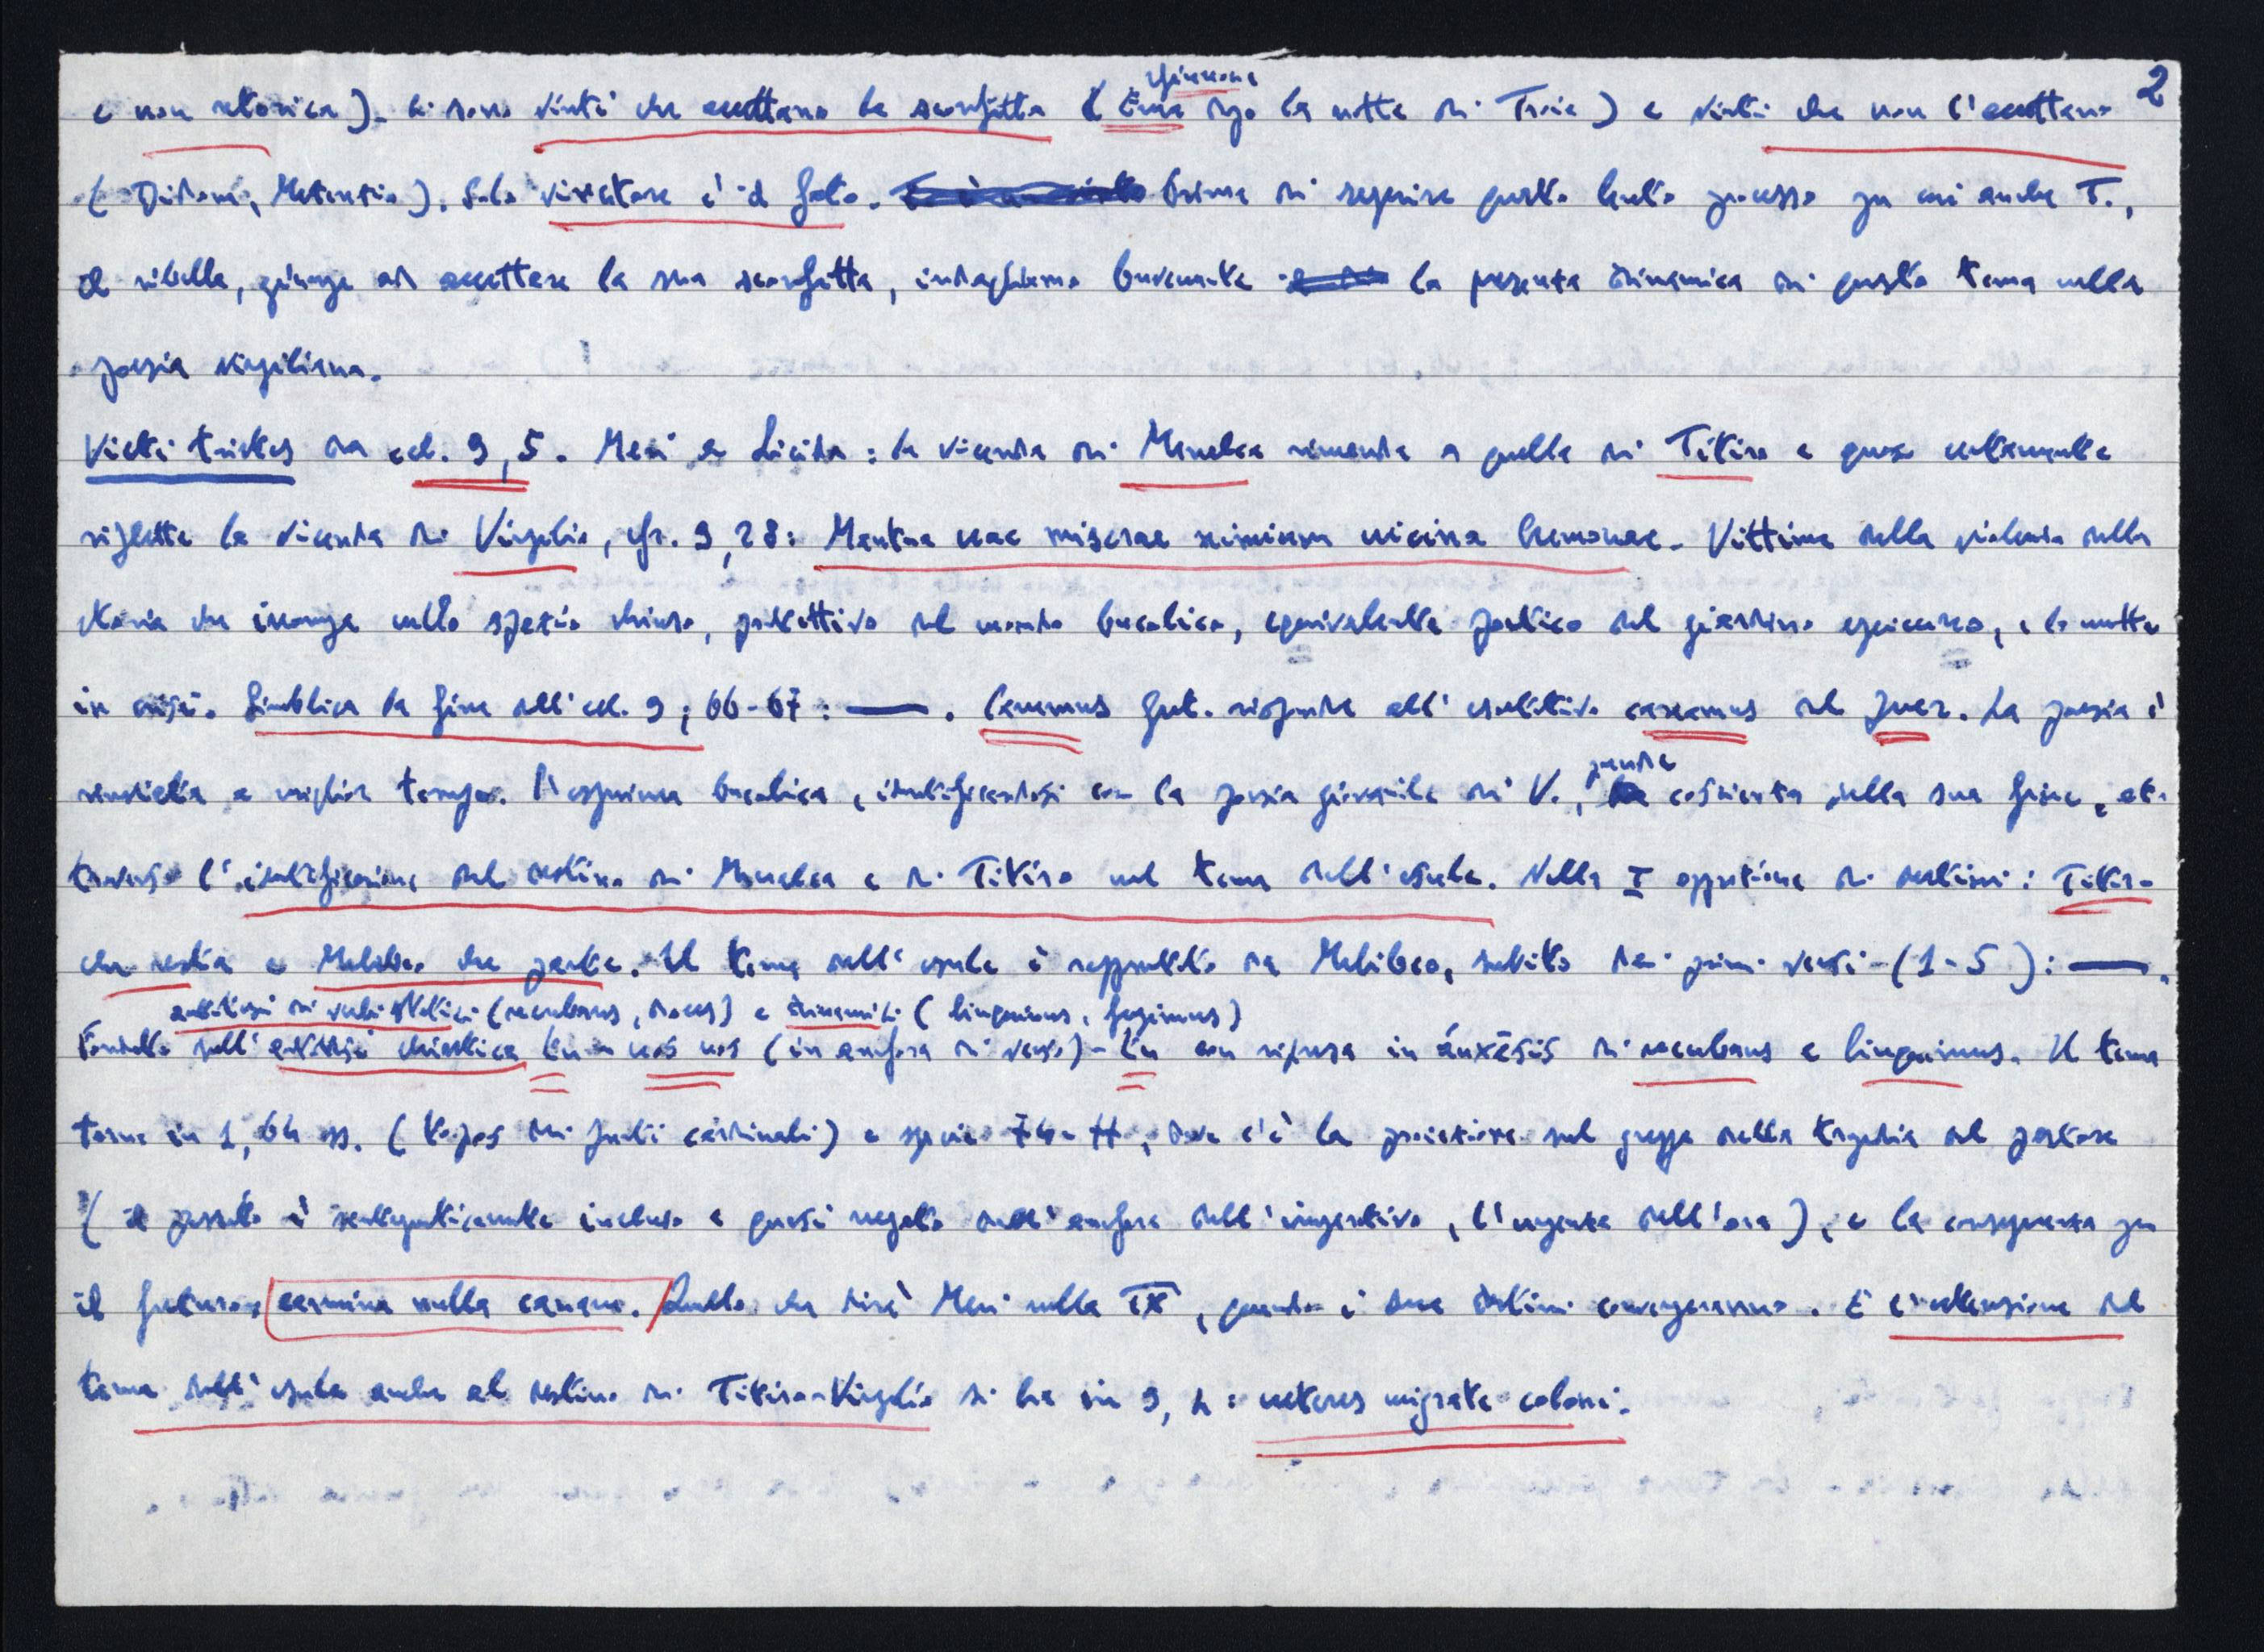 2
Giunone
e non retorica). Ci sono vinti che accettano la sconfitta (Enea dopo la notte di Troia) e vinti che non l'accettano
(Didone, Mezenzio). Solo vincitore è il fato. Prima di seguire questo lento processo per cui anche T.,
il ribelle, giunge ad accettare la sua sconfitta, indaghiamo brevemente la presenza dinamica di questo tema nella
poesia virgiliana.
Victi tristes da ecl. 9,5. Meri e Licida: la vicenda di Menalca rimanda a quella di Titiro e quasi certamente
riflette la vicenda di Virgilio, cfr. 9,28: Mantua vae miserae nimium vicina Cremonae. Vittime della violenza della
storia che irrompe nello spazio chiuso, protettivo del mondo bucolico, equivalente poetico del giardino epicureo, e lo mette
in crisi. Simbolica la fine dell'ecl. 9, 66-67: — . Canemus fut. risponde all'esortativo canamus del puer. La poesia è
rinviata a miglior tempo. L'esperienza bucolica, identificandosi con la poesia giovanile di V.,
prende
coscienza della sua fine, at-
traverso l'identificazione del destino di Menalca e di Titiro nel tema dell'esule. Nella I opposizione di destini: Titiro
che resta e Melibeo che parte. Il tema dell'esule è rappresentato da Melibeo, subito dai primi versi (1-5): — .
antitesi di verbi statici (recubans, doces) e dinamici (linquimus, fugimus)
Condotto sull'antitesi chiastica tu - nos nos (in anafora di verso) - tu con ripresa in áuxēsis di recubans e linquimus. Il tema
torna in 1, 64 ss. (topos dei punti cardinali) e specie 74-77, dove c'è la proiezione sul gregge della tragedia del pastore
(il passato è sintagmaticamente incluso e quasi negato dall'anafora dell'imperativo, l'urgenza dell'ora), e la conseguenza per
il futuro: carmina nulla canam. Quello che dirà Meri nella IX, quando i due destini convergeranno. E l'estensione del
tema dell'esule anche al destino di Titiro-Virgilio si ha in 9, 4: veteres migrate coloni.